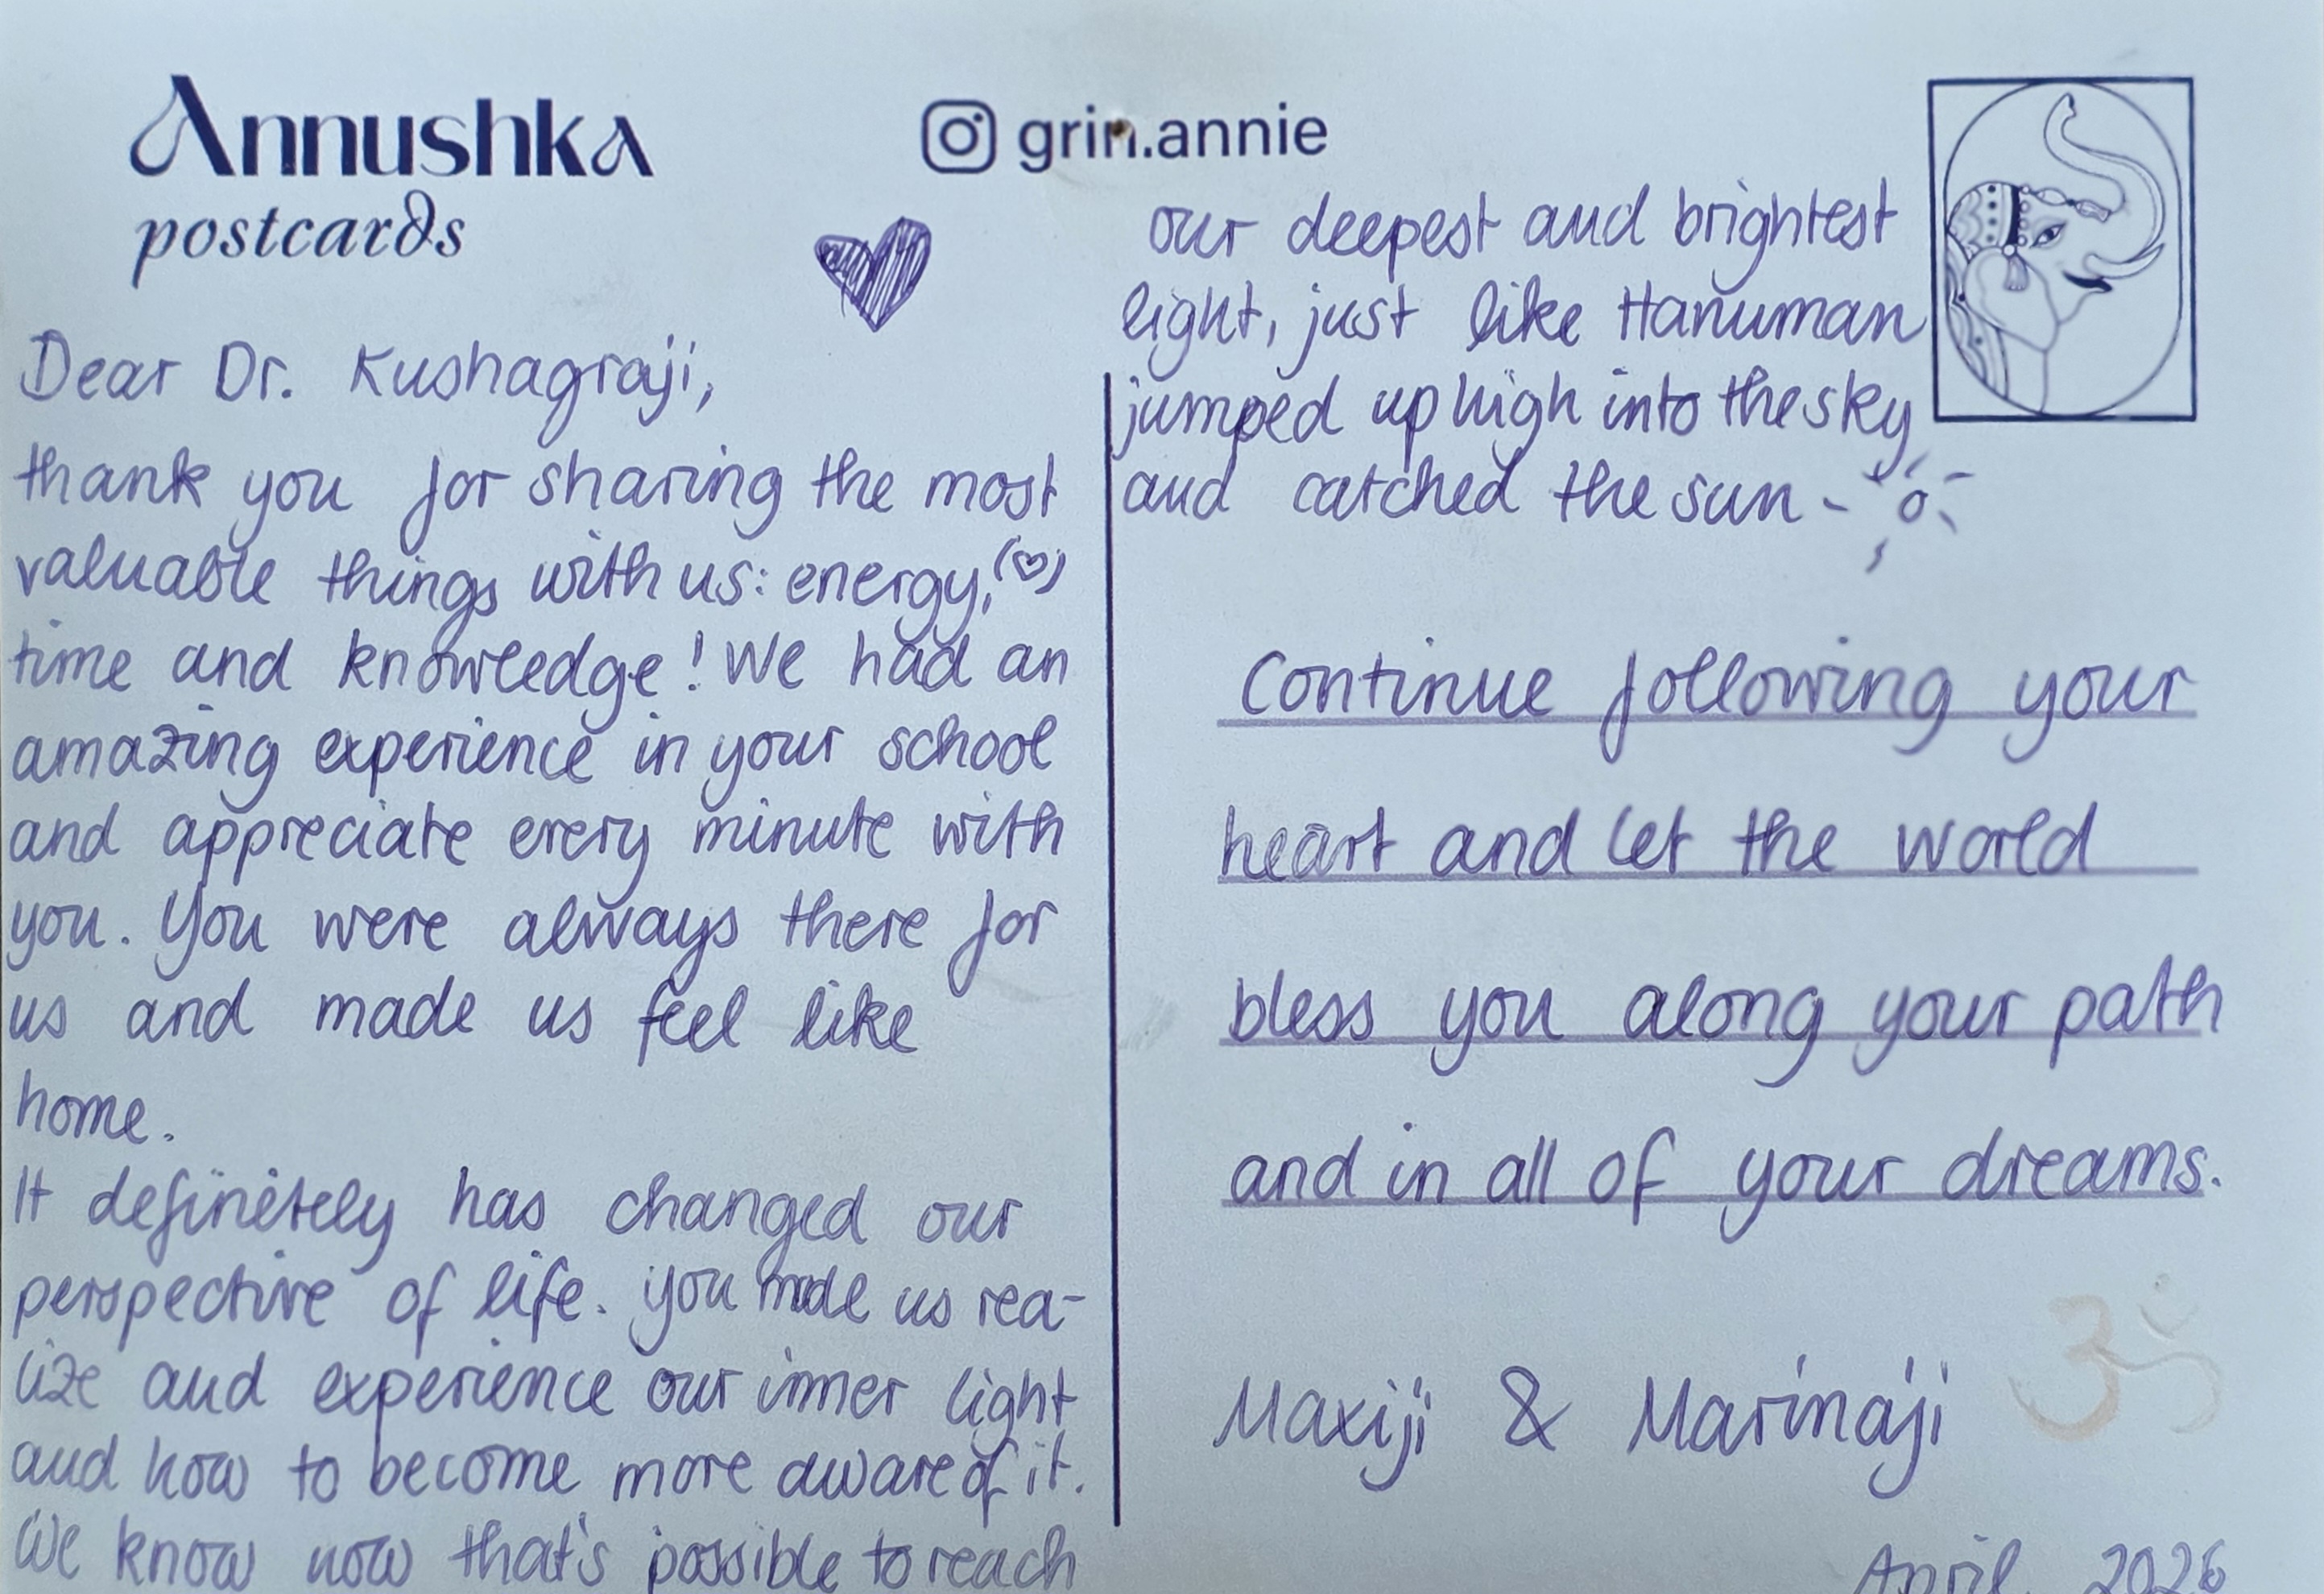 Annushka
postcards
grin.annie
Dear Dr. Kushagraji,
thank you for sharing the most
valuable things with us: energy, (♡)
time and knowledge! We had an
amazing experience in your school
and appreciate every minute with
you. You were always there for
us and made us feel like
home.
It definetely has changed our
perspective of life. You made us rea-
lize and experience our inner light
and how to become more aware of it.
We know now that's possible to reach
our deepest and brightest
light, just like Hanuman
jumped up high into the sky
and catched the sun
Continue following your
heart and let the world
bless you along your path
and in all of your dreams.
Maxiji & Marinaji
ॐ
April 2026